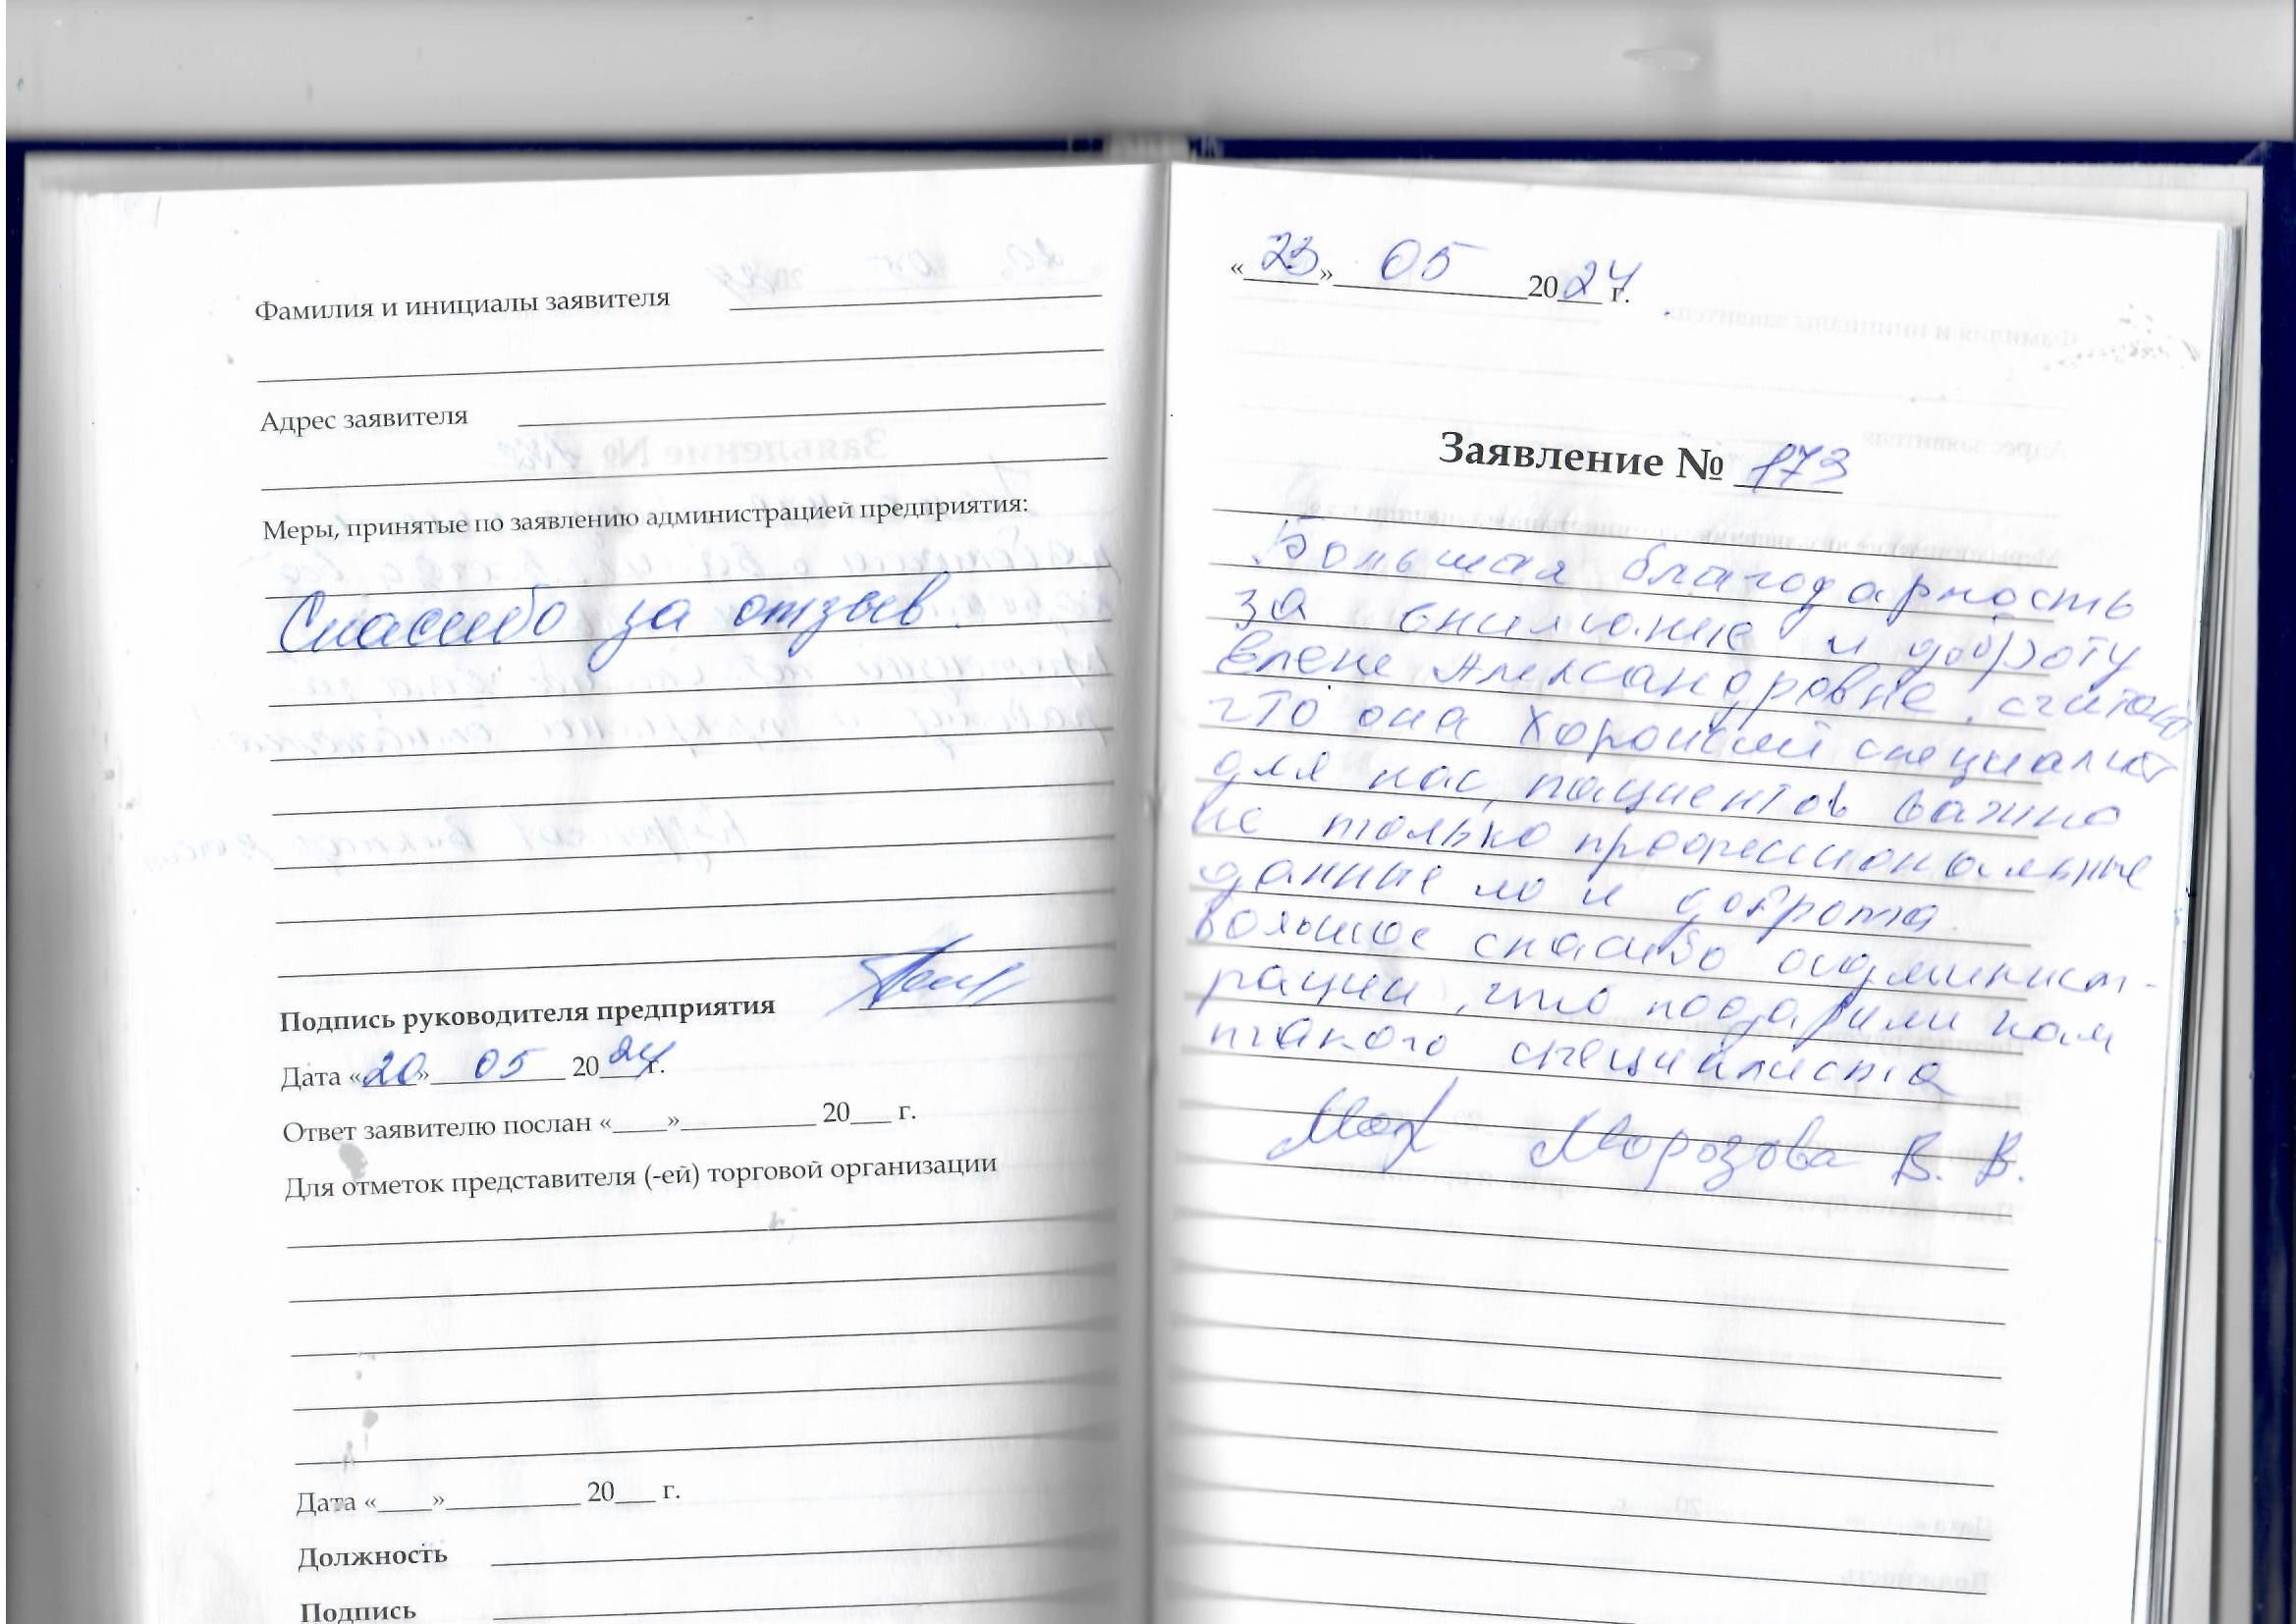 Фамилия и инициалы заявителя
Адрес заявителя
Меры, принятые по заявлению администрацией предприятия:
Спасибо за отзыв.
Подпись руководителя предприятия
Дата «20» 05 2024 г.
Ответ заявителю послан «____»__________ 20___ г.
Для отметок представителя (-ей) торговой организации
Дата «____»__________ 20___ г.
Должность
Подпись
«23» 05 2024 г.
Заявление № 173
Большая благодарность
за внимание и доброту
Елене Александровне, считаю
что она хороший специалист
для нас, пациентов важно
не только профессиональные
данные но и доброта.
Большое спасибо админист-
рации, что подарили нам
такого специалиста
Морозова В. В.